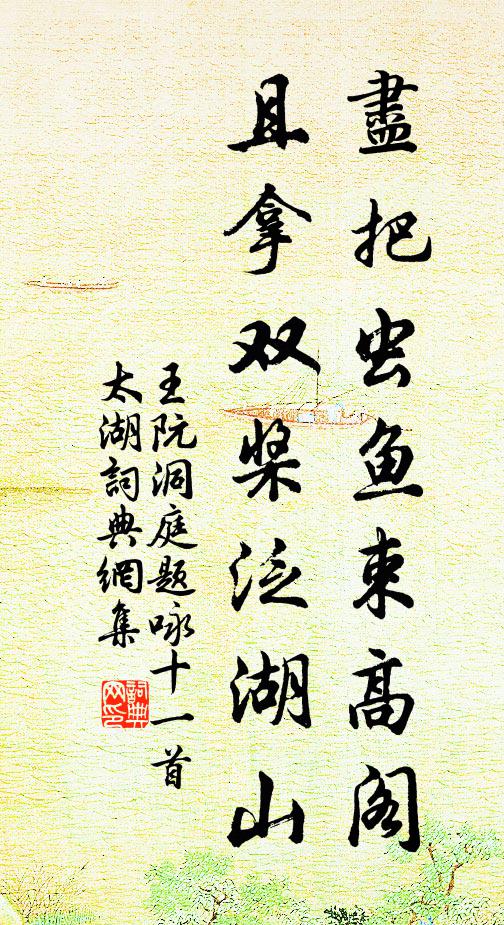 盡把虫鱼束高阁
且拿双桨泛湖山
王阮洞庭题咏十一首
太湖詞典網集
詞典
网印